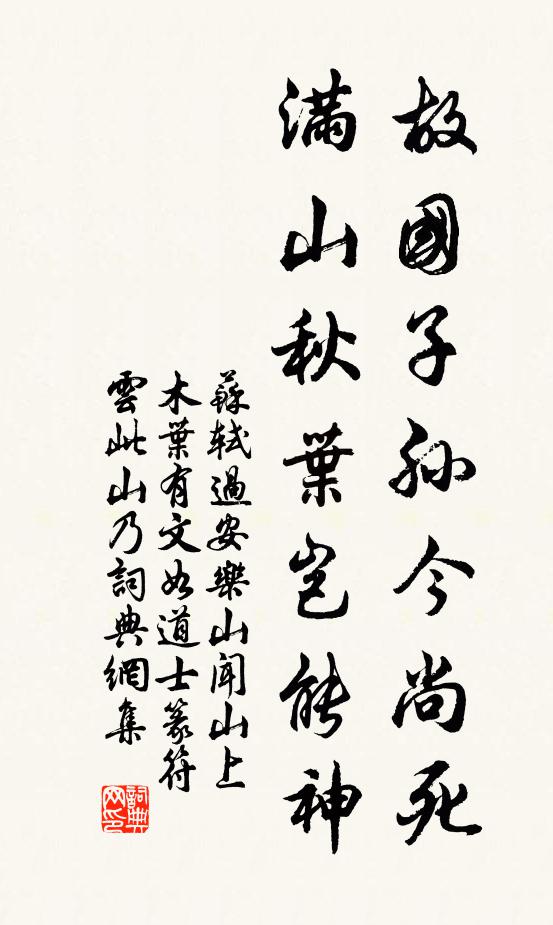 故國子孫今尚死
滿山秋葉豈能神
蘇軾過安樂山聞山上
木葉有文如道士篆符
雲此山乃詞典網集
詞典网印